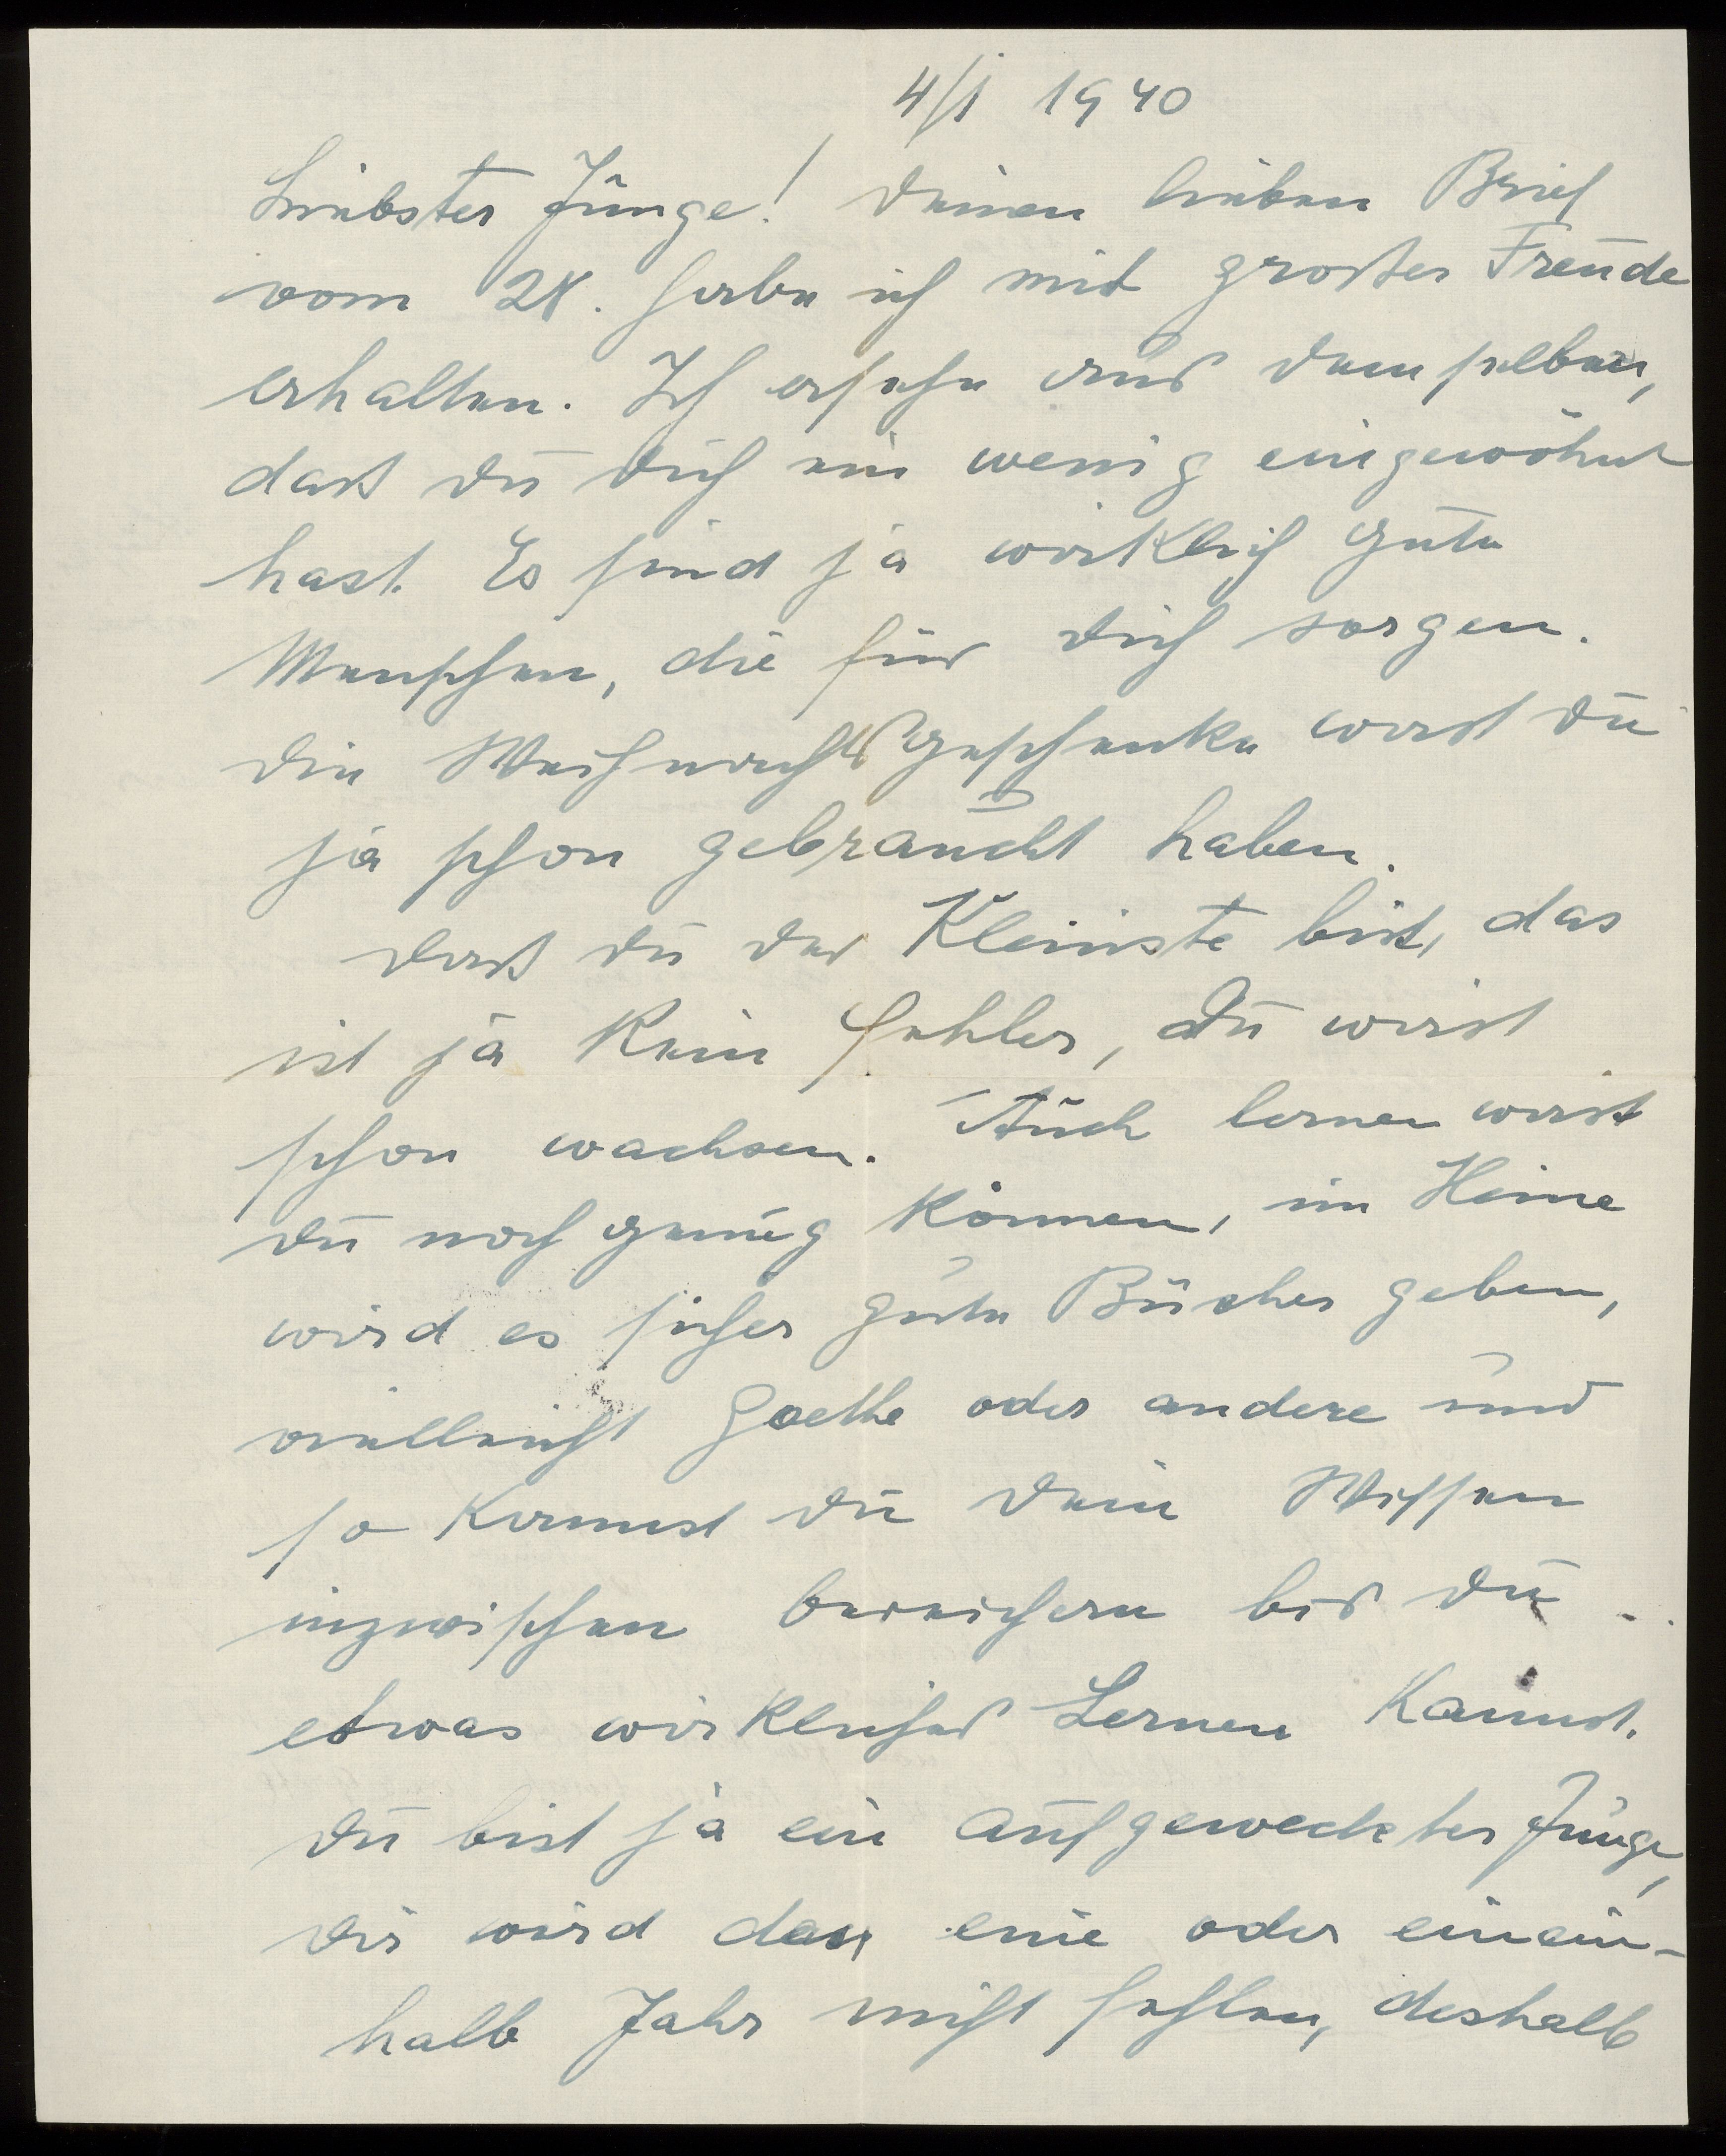 4/I 1940
Liebster Junge! Deinen lieben Brief
vom 28. habe ich mit großer Freude
erhalten. Ich ersehe aus demselben,
daß Du Dich ein wenig eingewöhnt
hast. Es sind ja wirklich gute
Menschen, die für Dich sorgen.
Die Weihnachtsgeschenke wirst Du
ja schon gebraucht haben.
Daß Du der Kleinste bist, das
ist ja kein Fehler, Du wirst
schon wachsen. Auch lernen wirst
Du noch genug können, im Heime
wird es sicher gute Bücher geben,
vielleicht Goethe oder andere und
so kannst Du Dein Wissen
inzwischen bereichern bis Du
etwas wirkliches Lernen kannst.
Du bist ja ein aufgeweckter Junge,
Dir wird das eine oder einein-
halb Jahr nicht fehlen, deshalb